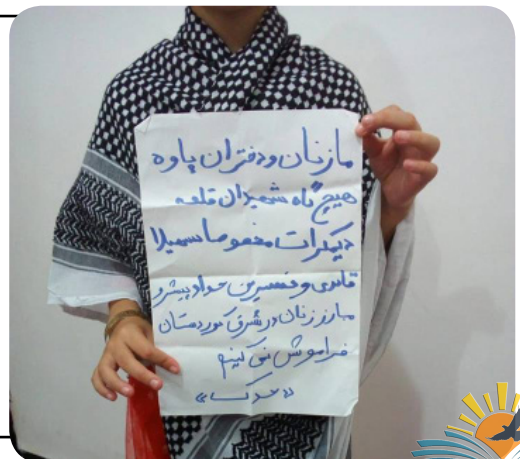 ما زنان و دختران پاوه
هیچ گاه شهیدان قلعه
دیمکرات مخصوصا سهیلا
قادری و نسرین حداد پیشرو
مبارز زنان در شرق کوردستان
فراموش نمی کنیم
«حدکا»